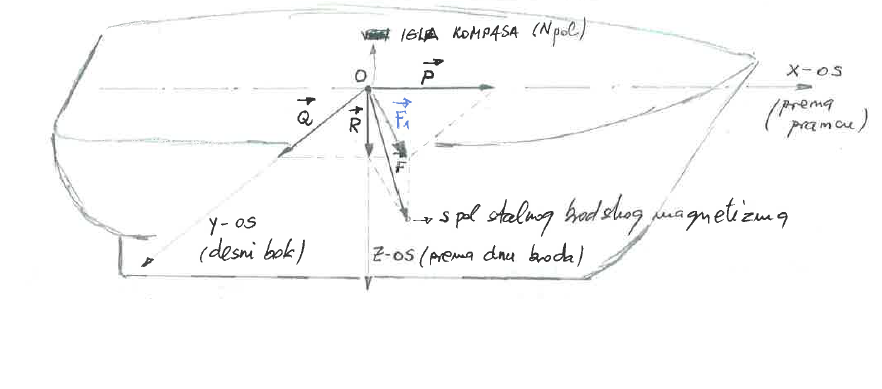 IGLA KOMPASA (N pol)
O
P
X-OS
(prema
pramcu)
Q
R
F1
F
s pol stalnog brodskog magnetizma
Y-OS
(desni bok)
Z-OS (prema dnu broda)